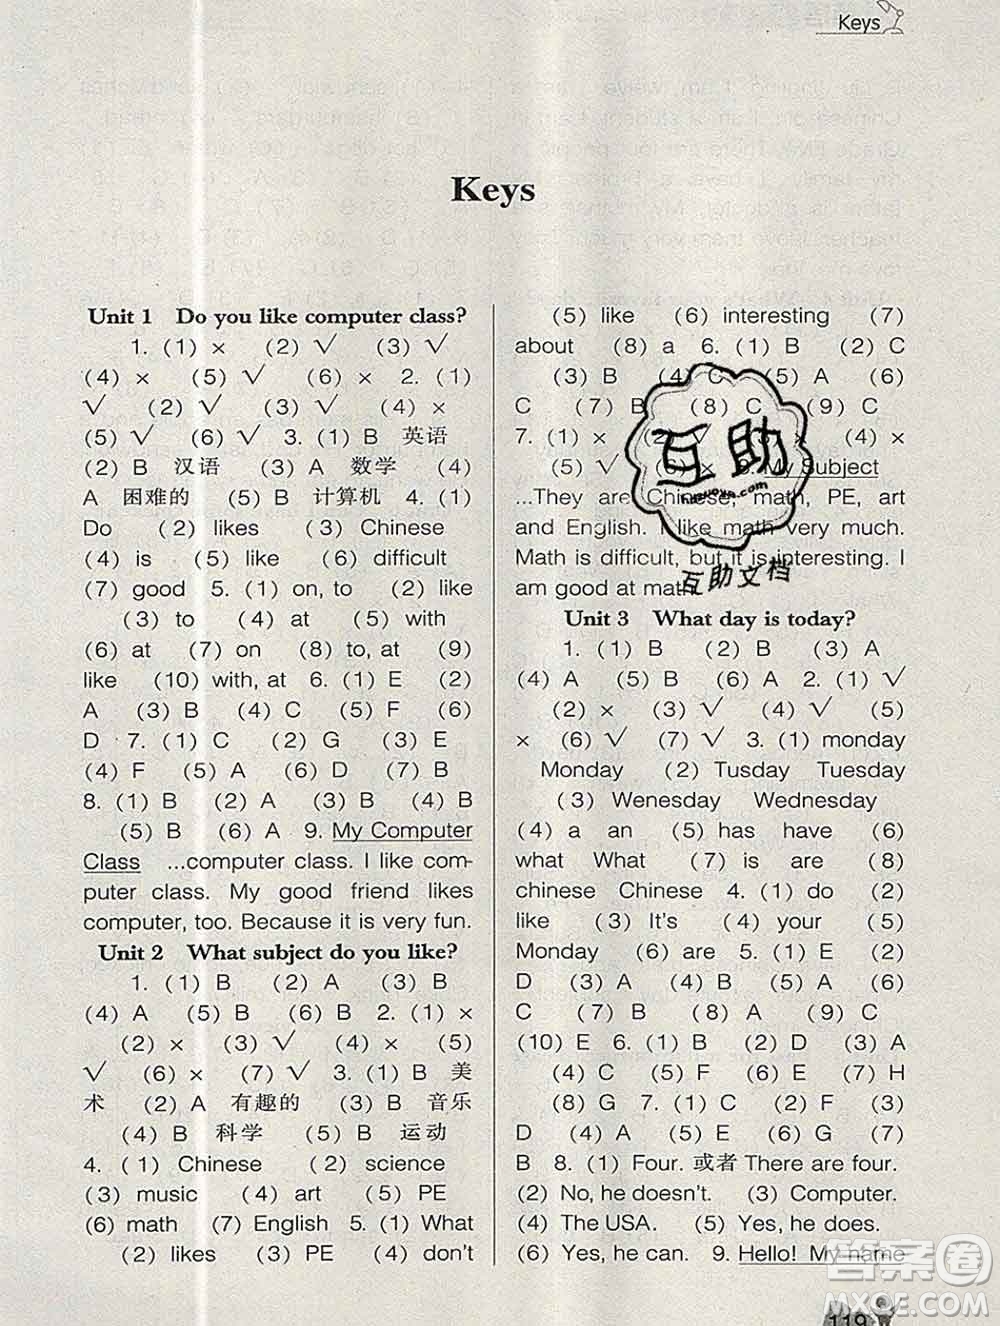 Keys
Keys
Unit 1 Do you like computer class?
1. (1) × (2) √ (3) √
(4) × (5) √ (6) × 2. (1)
√ (2) √ (3) √ (4) ×
(5) √ (6) √ 3. (1) B 英语
(2) B 汉语 (3) A 数学 (4)
A 困难的 (5) B 计算机 4. (1)
Do (2) likes (3) Chinese
(4) is (5) like (6) difficult
(7) good 5. (1) on, to (2) like
(3) to (4) at (5) with
(6) at (7) on (8) to, at (9)
like (10) with, at 6. (1) E (2)
A (3) B (4) C (5) F (6)
D 7. (1) C (2) G (3) E
(4) F (5) A (6) D (7) B
8. (1) B (2) A (3) B (4) B
(5) B (6) A 9. My Computer
Class ...computer class. I like com-
puter class. My good friend likes
computer, too. Because it is very fun.
Unit 2 What subject do you like?
1. (1) B (2) A (3) B
(4) A (5) B (6) B 2. (1) ×
(2) × (3) √ (4) × (5)
√ (6) × (7) √ 3. (1) B 美
术 (2) A 有趣的 (3) B 音乐
(4) B 科学 (5) B 运动
4. (1) Chinese (2) science
(3) music (4) art (5) PE
(6) math (7) English 5. (1) What
(2) likes (3) PE (4) don't
(5) like (6) interesting (7)
about (8) a 6. (1) B (2) C
(3) B (4) C (5) A (6)
C (7) B (8) C (9) C
7. (1) × (2) (3) × (4) ×
(5) √ (6) × 9. My Subject
...They are Chinese, math, PE, art
and English. I like math very much.
Math is difficult, but it is interesting. I
am good at math.
Unit 3 What day is today?
1. (1) B (2) B (3) A
(4) A (5) B (6) A 2. (1) √
(2) × (3) √ (4) √ (5)
× (6) √ (7) √ 3. (1) monday
Monday (2) Tusday Tuesday
(3) Wenesday Wednesday
(4) a an (5) has have (6)
what What (7) is are (8)
chinese Chinese 4. (1) do (2)
like (3) It's (4) your (5)
Monday (6) are 5. (1) E (2)
D (3) A (4) B (5) A (6)
C (7) B (8) A (9) C
(10) E 6. (1) B (2) D (3) A
(4) C (5) F (6) E (7) H
(8) G 7. (1) C (2) F (3)
D (4) A (5) E (6) G (7)
B 8. (1) Four. 或者 There are four.
(2) No, he doesn't. (3) Computer.
(4) The USA. (5) Yes, he does.
(6) Yes, he can. 9. Hello! My name
119
互助
互助文档
答案圈
MXQE.COM